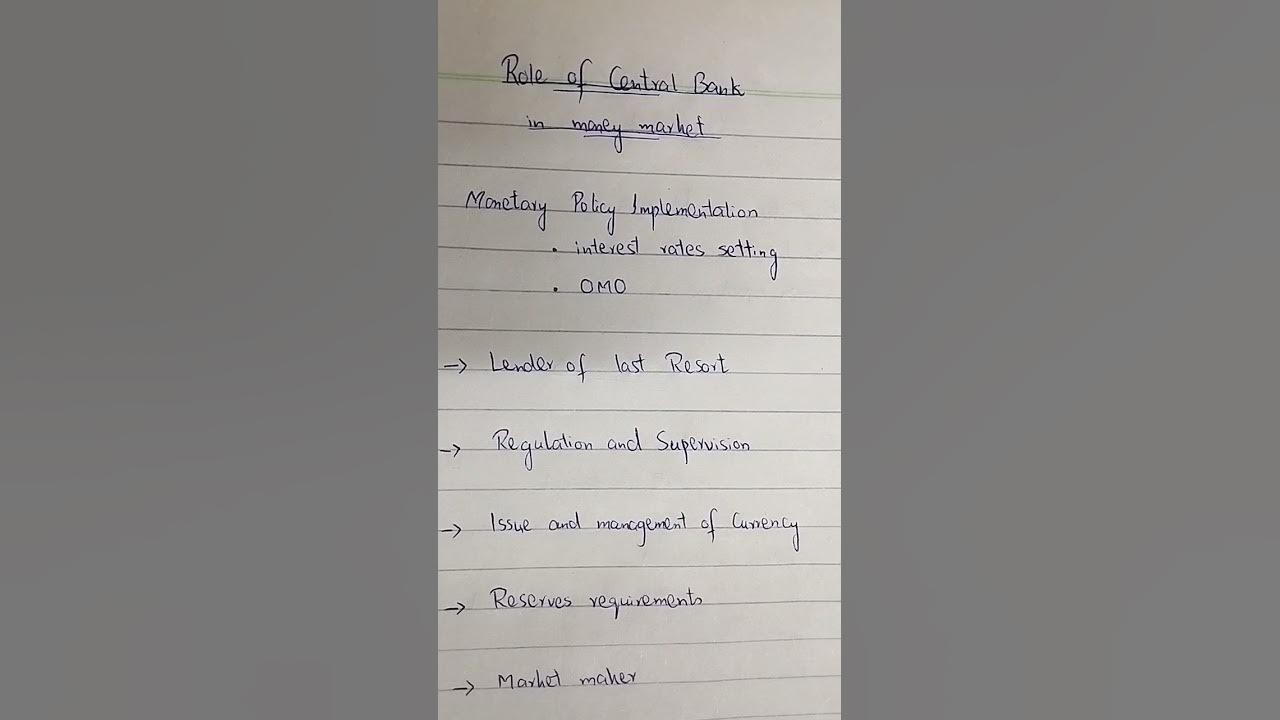 Role of Central Bank
in money market
Monetary Policy Implementation
• interest rates setting
• OMO
→ Lender of last Resort
→ Regulation and Supervision
→ Issue and management of Currency
→ Reserves requirements
→ Market maker